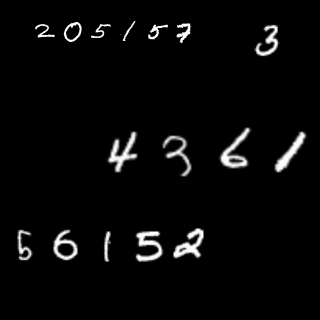 205157 3
4361
56152